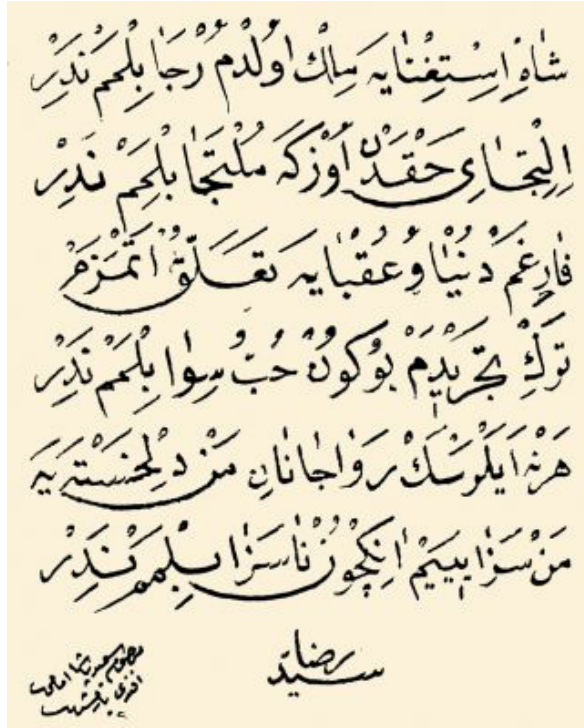 شاهِ اِسْتِغْنايه مِلك اوُلْدُم رَجا بِلْمَم نَدِرْ
اِلْتِجايِ حَقدَن اوُزكَه مُلتَجا بِلْمَم نَدِرْ
فارِغَم دُنيا وُعُقبايه تَعَلّق اتمَزَم
تَركِ تَجريدِم بوُكوُن حُبِّ سِوا بِلْمَم نَدِرْ
هَرنه اَيلَرسَك رَوا جانانِ مَن دِلخسته يَه
مَن سَزا بينَيم انِكچون ناسَزا بِلْمَم نَدِرْ
سيد رضا